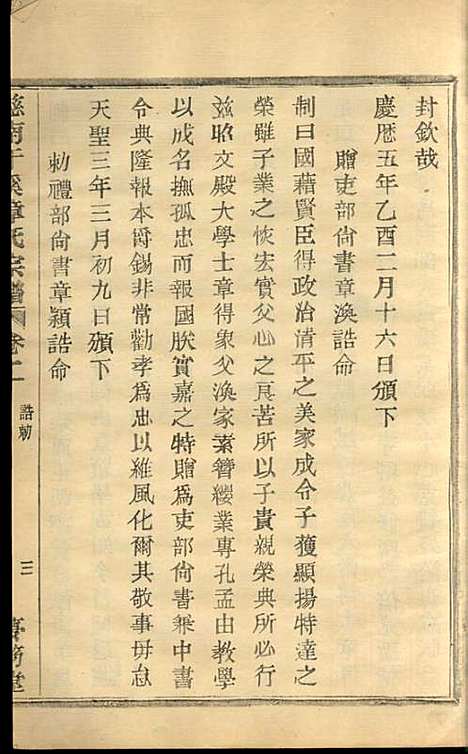 封欽哉
慶曆五年乙酉二月十六日頒下
贈吏部尙書章渙誥命
制曰國藉賢臣得政治淸平之美家成令子獲顯揚特達之
榮雖子業之恢宏實父心之眞苦所以子貴親榮典所必行
玆昭文殿大學士章得象父渙家素簪纓業專孔孟由敎學
以成名撫孤忠而報國朕實嘉之特贈爲吏部尙書兼中書
令典隆報本爵錫非常勸孝爲忠以維風化爾其敬事毋怠
天聖三年三月初九日頒下
勑禮部尙書章穎誥命
慈南 章氏宗譜 卷二 誥勑 三